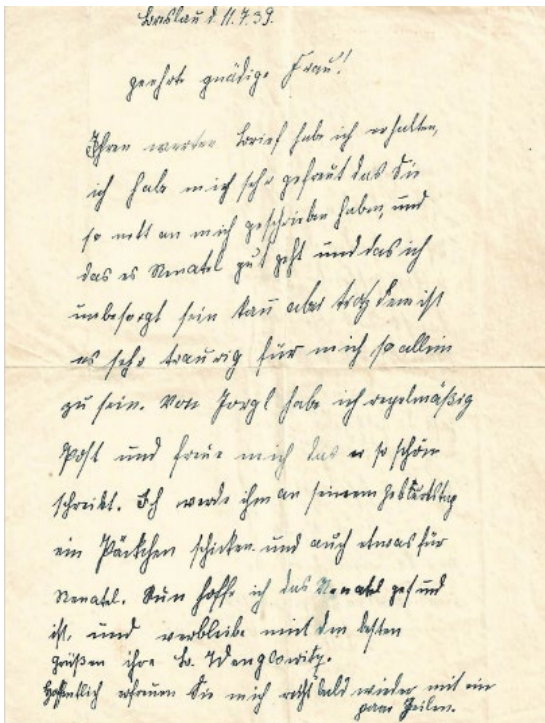 Breslau d. 11.7.39.
geehrte gnädige Frau!
Ihren werten Brief habe ich erhalten,
ich habe mich sehr gefreut das Sie
so nett an mich geschrieben haben, und
das es Renatel gut geht und das ich
unbesorgt sein kann aber trotz dem ist
es sehr traurig für mich so allein
zu sein. Von Jorgl habe ich regelmäßig
Post und freue mich das er so schön
schreibt. Ich werde ihm an seinem geburtstag
ein Päckchen schicken und auch etwas für
Renatel. Nun hoffe ich das Renatel gesund
ist, und verbleibe mit den besten
grüßen ihre
Hoffentlich erfreuen Sie mich recht bald wieder mit ein
paar Zeilen.